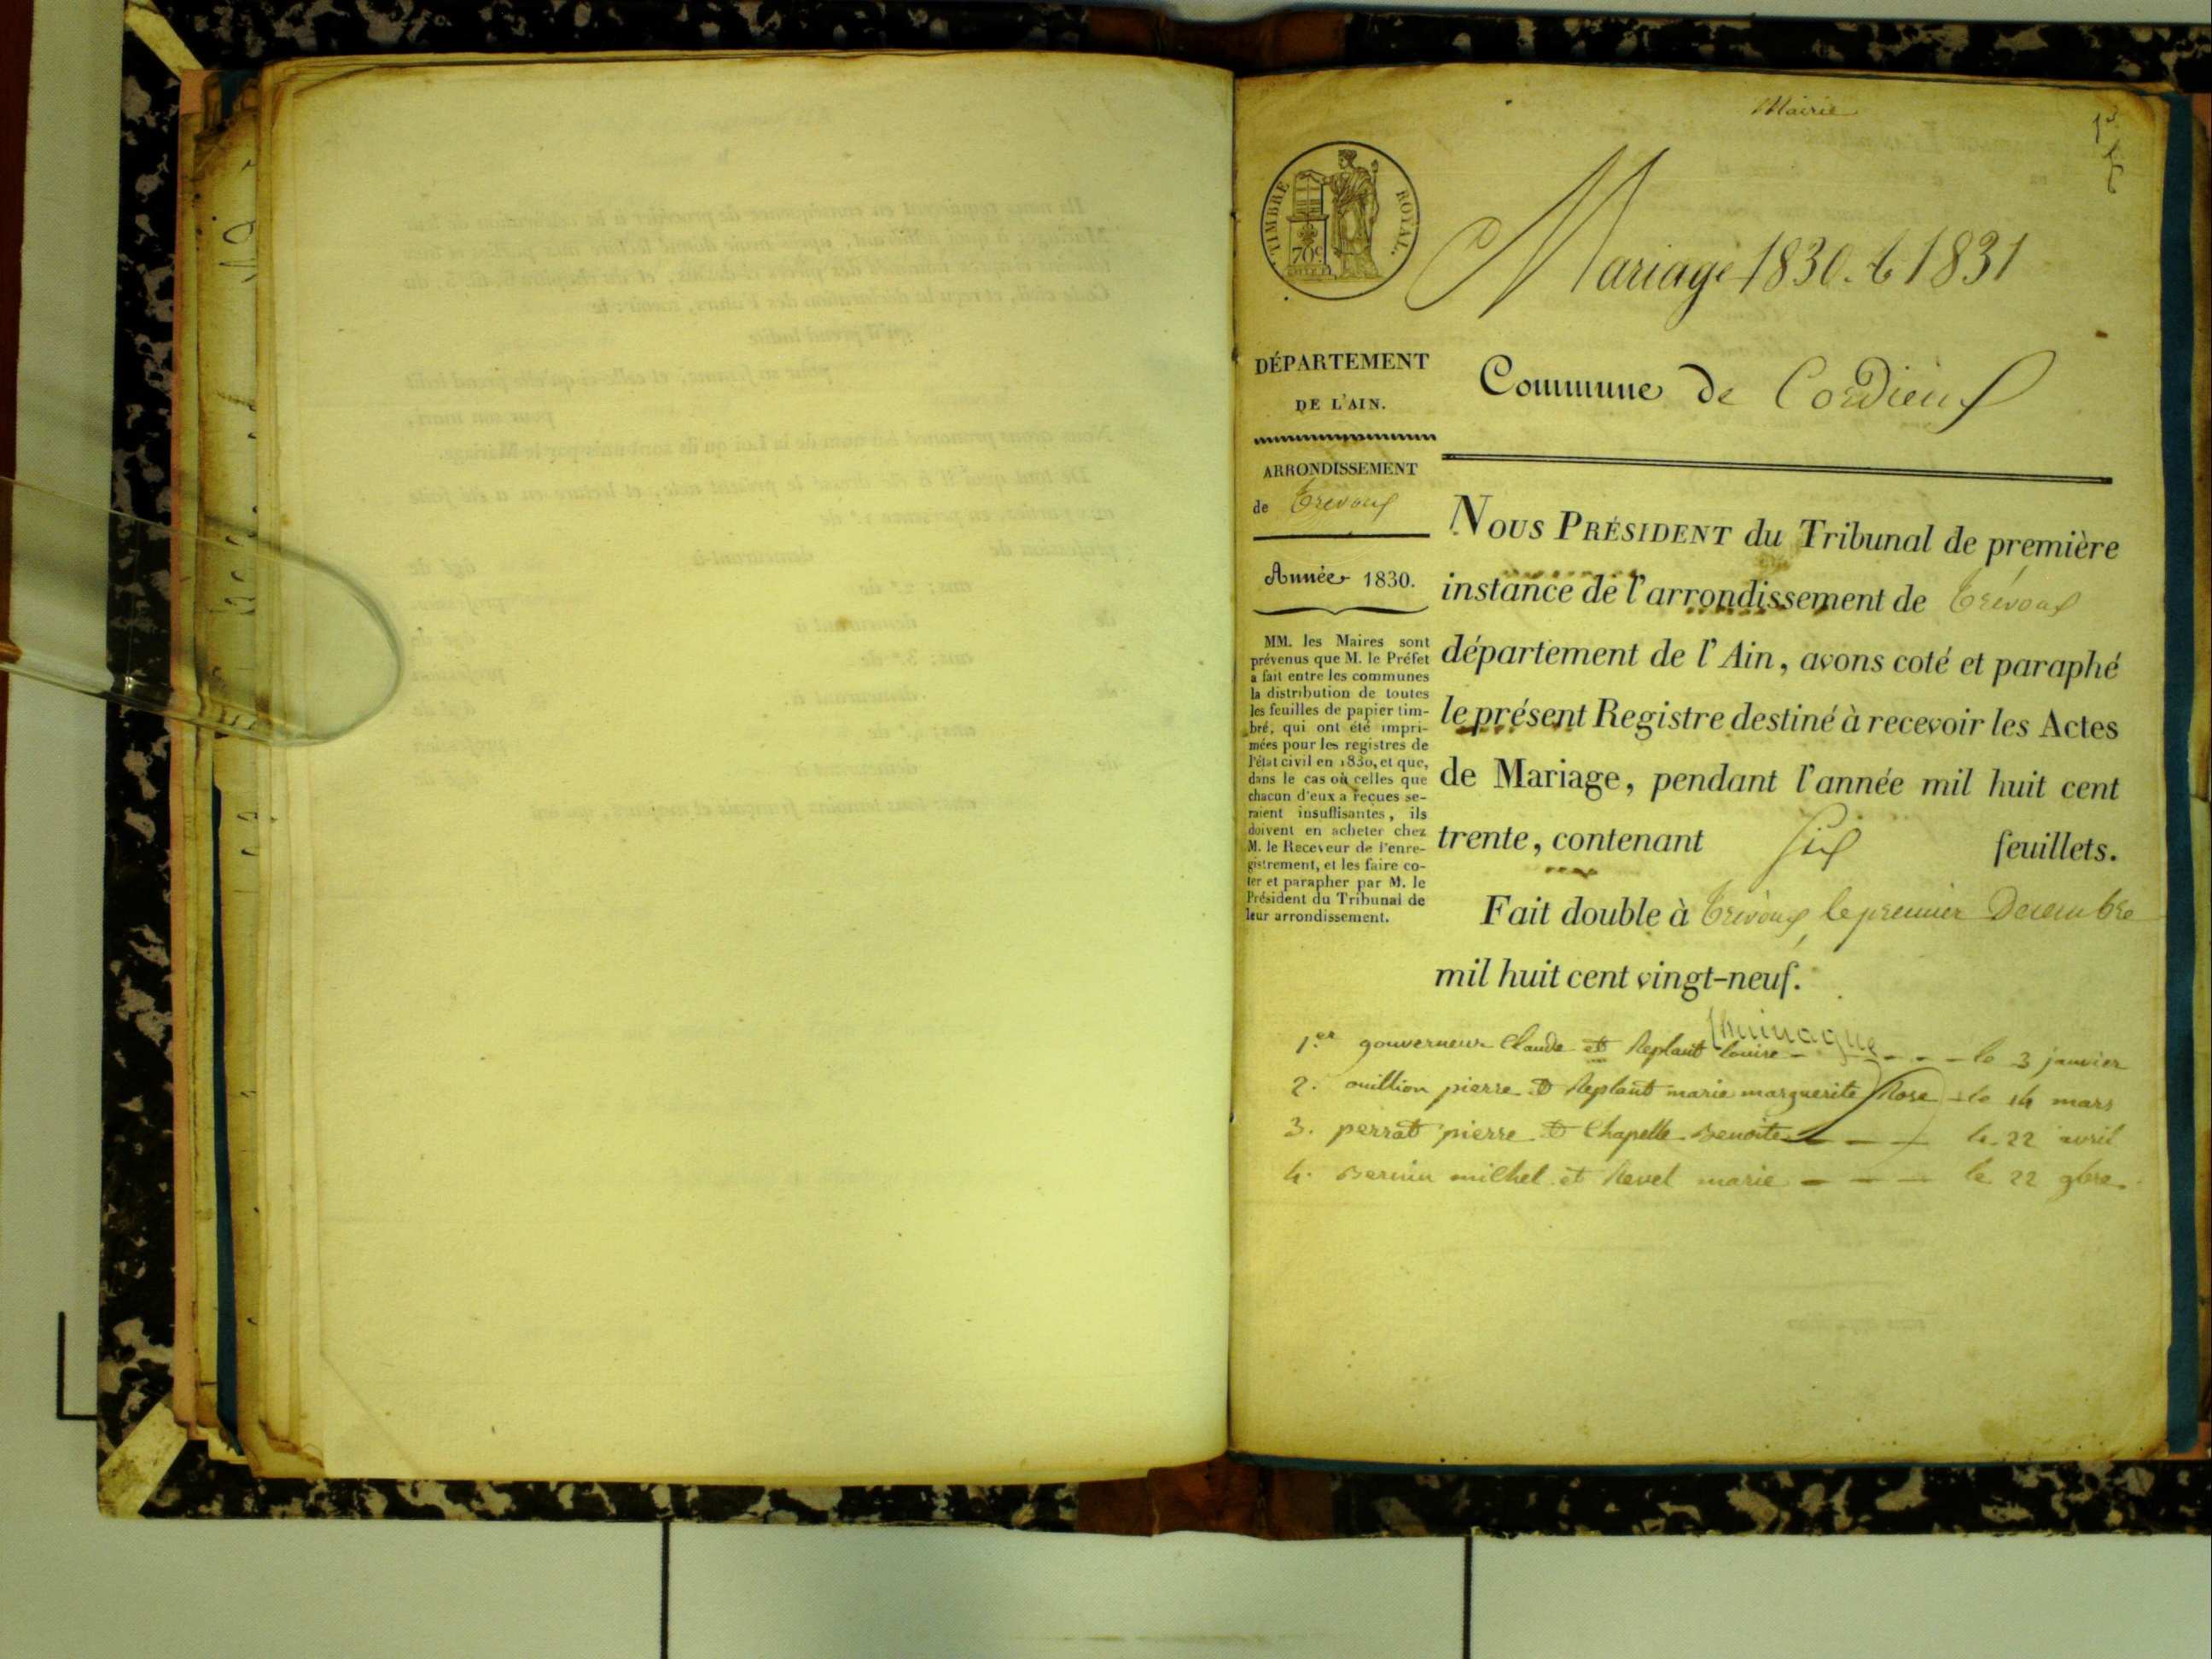 Mairie
TIMBRE ROYAL.
70c
Mariage 1830. & 1831
DÉPARTEMENT
DE L'AIN.
Commune de Cordieux
ARRONDISSEMENT
de Trevoux
Année 1830.
MM. les Maires sont
prévenus que M. le Préfet
a fait entre les communes
la distribution de toutes
les feuilles de papier tim-
bré, qui ont été impri-
mées pour les registres de
l'état civil en 1830, et que,
dans le cas où celles que
chacun d'eux a reçues se-
raient insuffisantes, ils
doivent en acheter chez
M. le Receveur de l'enre-
gistrement, et les faire co-
ter et parapher par M. le
Président du Tribunal de
leur arrondissement.
NOUS PRÉSIDENT du Tribunal de première
instance de l'arrondissement de Trévoux
département de l'Ain, avons coté et paraphé
le présent Registre destiné à recevoir les Actes
de Mariage, pendant l'année mil huit cent
trente, contenant Six feuillets.
Fait double à Trévoux le premier Decembre
mil huit cent vingt-neuf.
1.er gouverneur Claude et Replant louise - - - - le 3 janvier
2. pierre et Replant marie marguerite Rose - le 14 mars
3. perrat pierre et Chapelle Benoite - - - le 22 avril
4. michel et Revel marie - - - le 22 9bre.